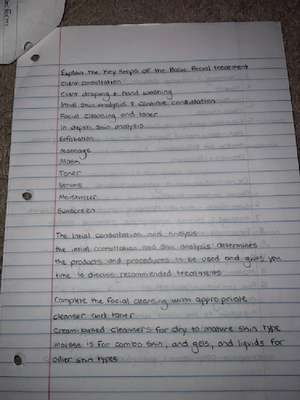 Explain the key steps of the Basic Facial treatment
Client consultation
Client draping & hand washing
Initial skin analysis & continue consultation
Facial cleansing and toner
In depth skin analysis
Exfoliation
Massage
Mask
Toner
Serums
Moisturizer
Sunscreen
The initial consultation and Analysis
the initial consultation and skin analysis determines
the products and procedures to be used and gives you
time to discuss recommended treatments
Complete the Facial cleansing with appropriate
cleanser and toner
Cream-based cleansers for dry to mature skin type
mousse is for combo skin, and gels, and liquids for
oilier skin types